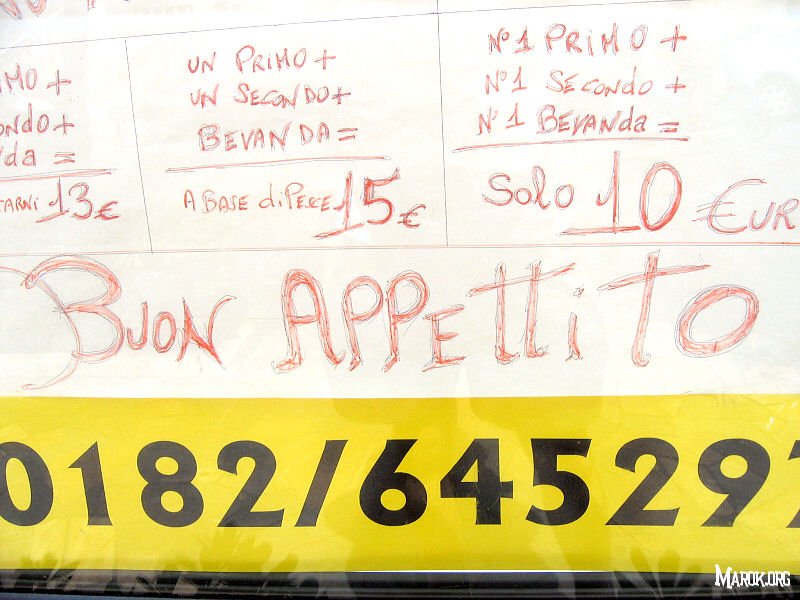 IMO +
ondo +
da =
CARNI 13 €
UN PRIMO +
UN SECONDO +
BEVANDA =
A BASE di PESCE 15 €
N° 1 PRIMO +
N° 1 SECONDO +
N° 1 BEVANda =
Solo 10 €UR
BUON APPEttito
0182/64529
MAROK.ORG